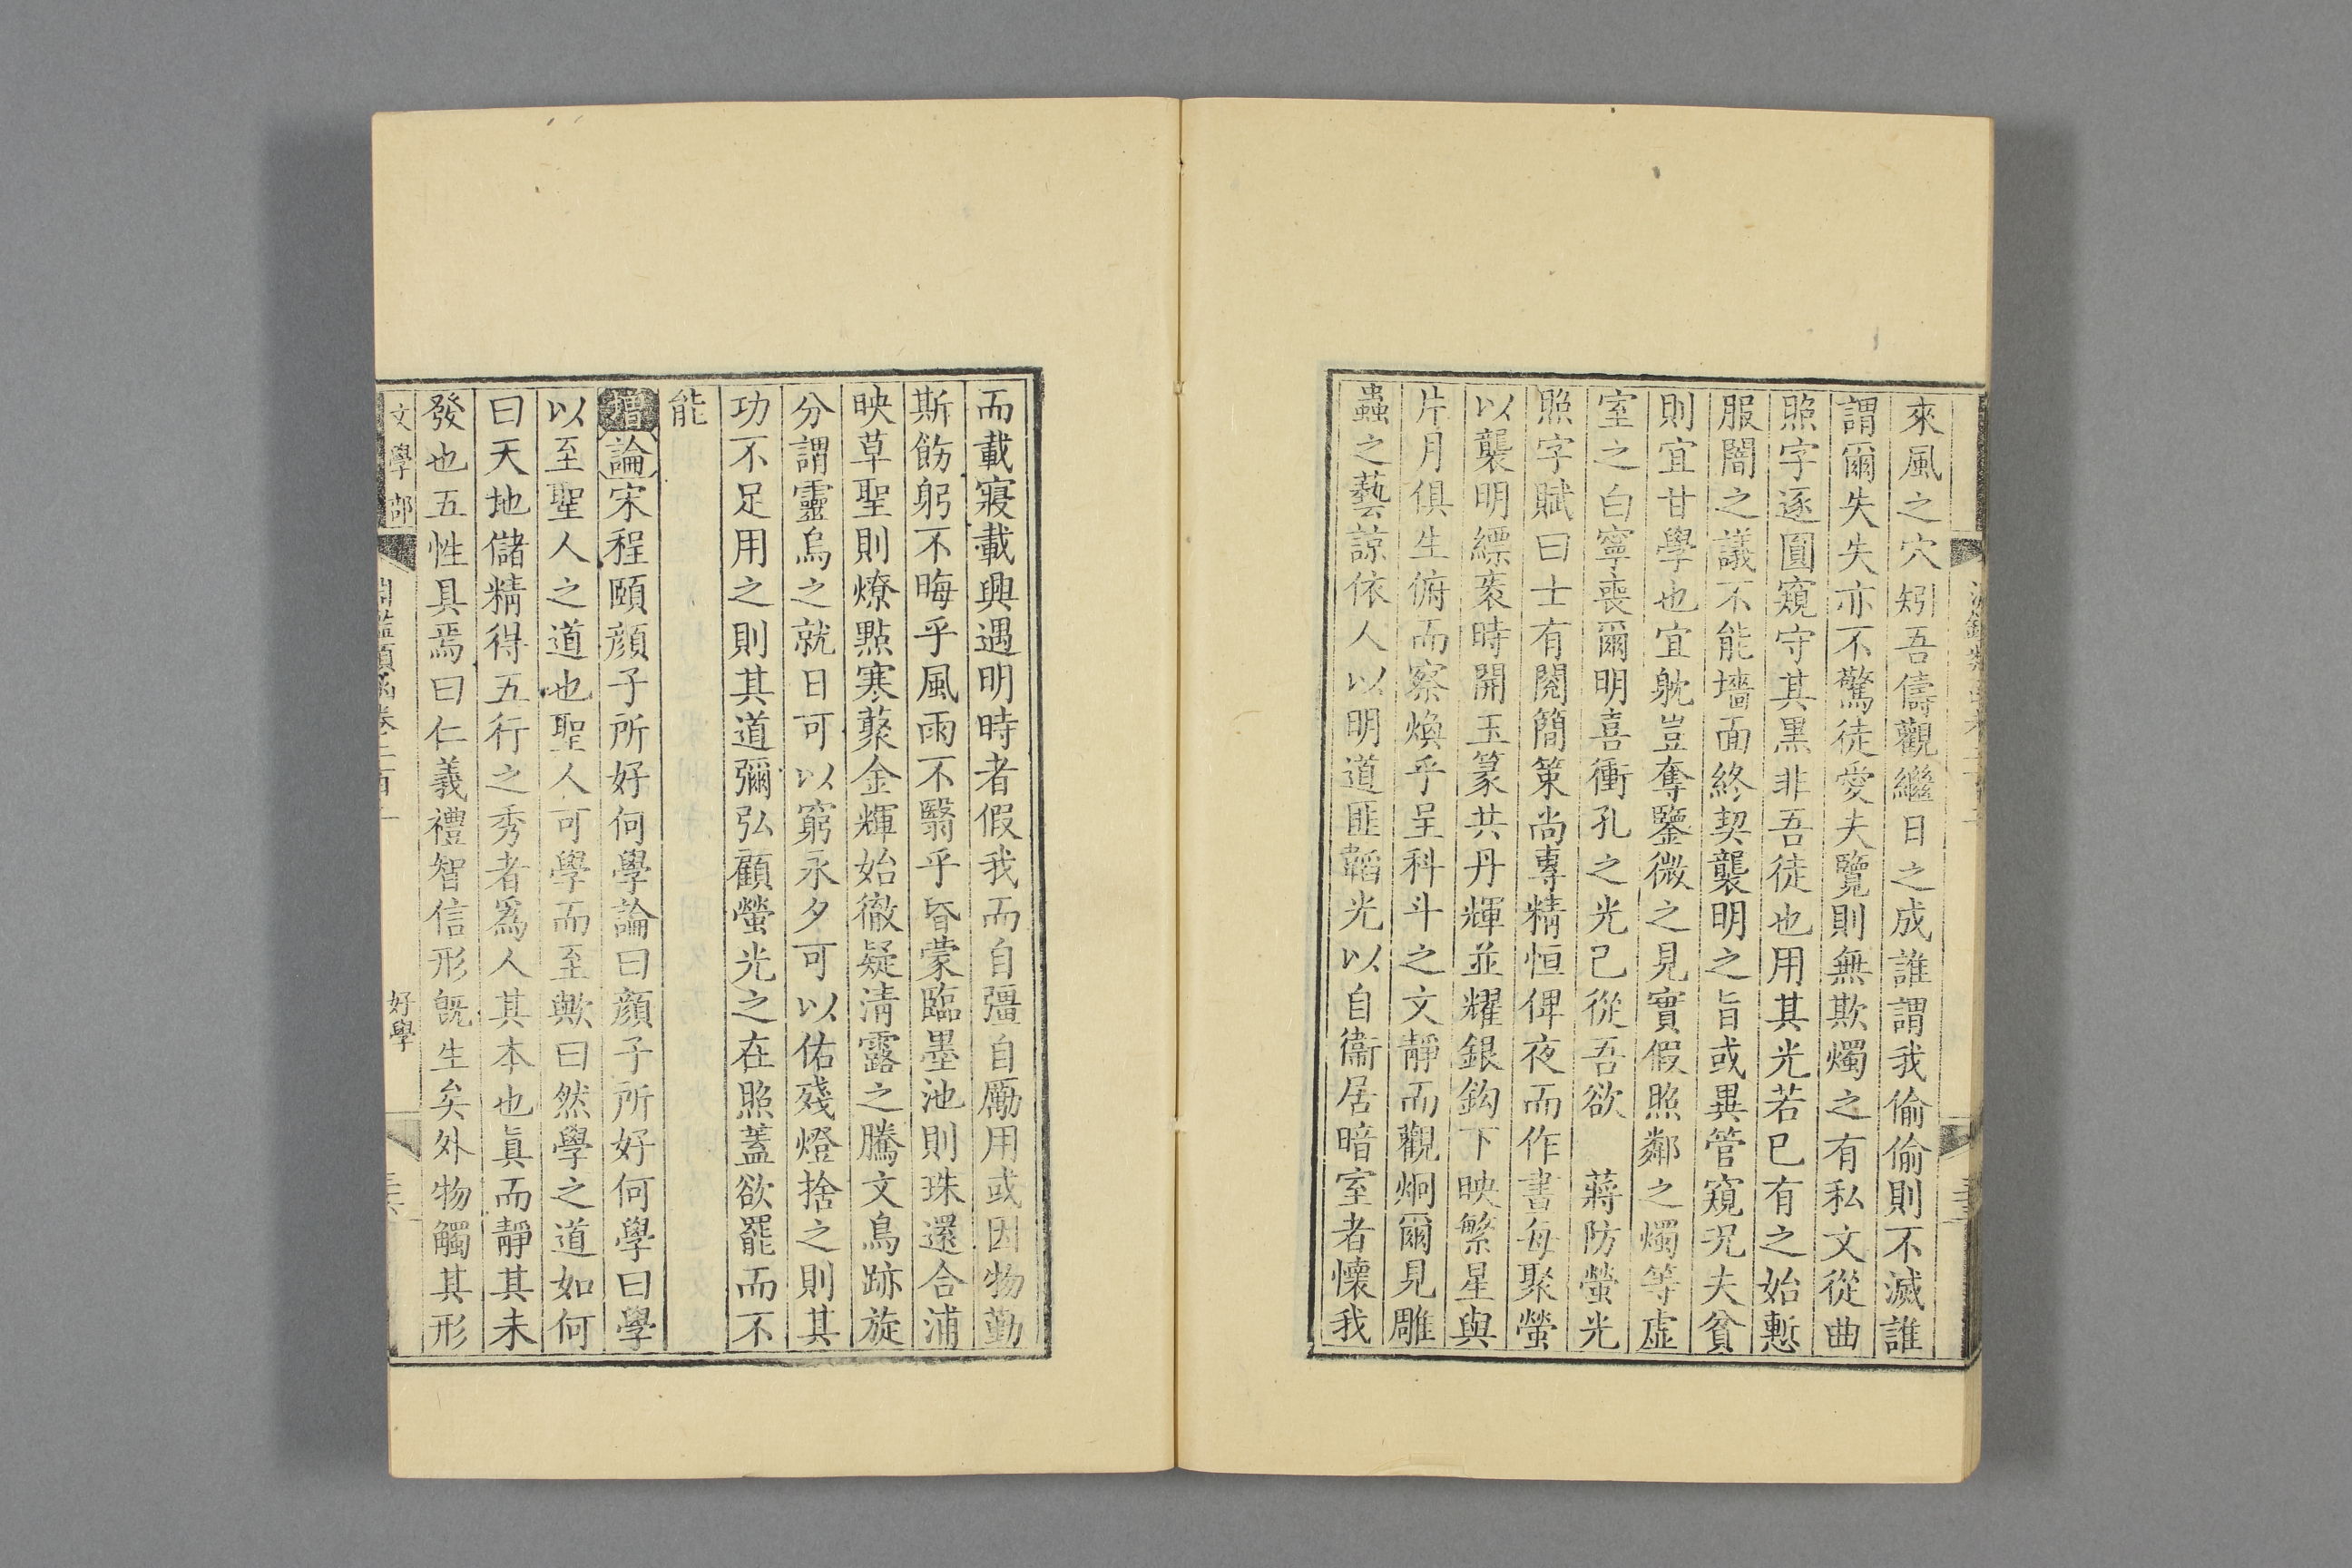 來風之穴矧吾儔觀繼日之成誰謂我偷偷則不滅誰
謂爾失失亦不驚徒愛夫覽則無欺燭之有私文從曲
照字逐圓窺守其黑非吾徒也用其光若巳有之始慙
服闇之議不能墻面終契襲明之旨或異管窺況夫貧
則宜甘學也宜躭豈奪鑒微之見實假照鄰之燭等虛
室之白寧喪爾明喜衝孔之光己從吾欲　蔣防螢光
照字賦曰士有閱簡策尚專精恒俾夜而作晝每聚螢
以襲明縹袠時開玉篆共丹輝並耀銀鈎下映繁星與
片月俱生俯而察煥乎呈科斗之文靜而觀炯爾見雕
蟲之藝諒依人以明道匪韜光以自衞居暗室者懷我
而載寢載興遇明時者假我而自彊自勵用或因物勤
斯飭躬不晦乎風雨不翳乎昏蒙臨墨池則珠還合浦
映草聖則燎點寒藂金輝始徹疑清露之騰文鳥跡旋
分謂靈烏之就日可以窮永夕可以佑殘燈捨之則其
功不足用之則其道彌弘顧螢光之在照蓋欲罷而不
能
增論宋程頤顔子所好何學論曰顔子所好何學曰學
以至聖人之道也聖人可學而至歟曰然學之道如何
曰天地儲精得五行之秀者爲人其本也眞而靜其未
發也五性具焉曰仁義禮智信形旣生矣外物觸其形
文學部
好學